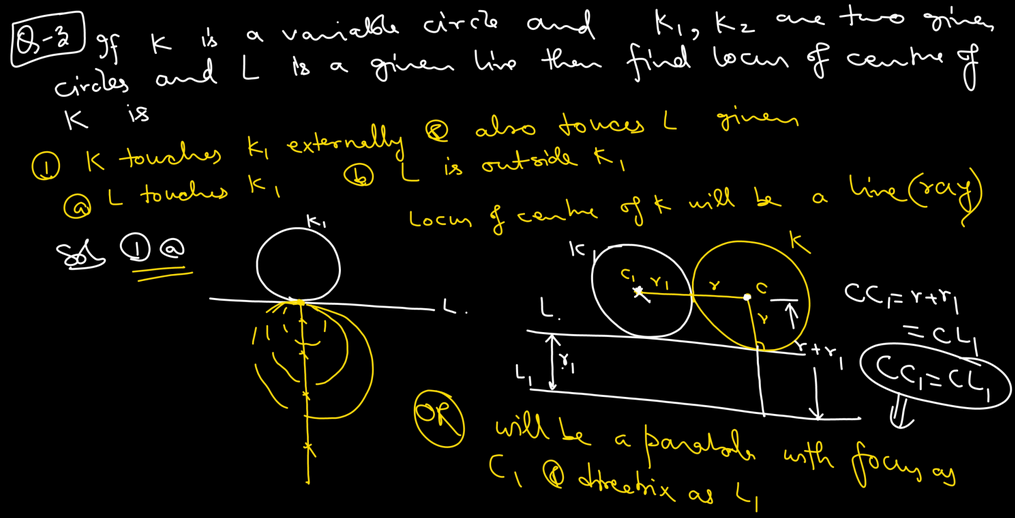 Q-3 If K is a variable circle and K1, K2 are two given
circles and L is a given line then find locus of centre of
K is
① K touches K1 externally & also touces L given
ⓐ L touches K1 ⓑ L is outside K1
Locus of centre of K will be a line (ray)
Sol ① ⓐ
K1
L.
K1
K
C1 r1 r C
r
L.
r1
L1
r+r1
CC1 = r+r1
= CL1
CC1 = CL1
⇓
OR will be a parabola with focus as
C1 & directrix as L1